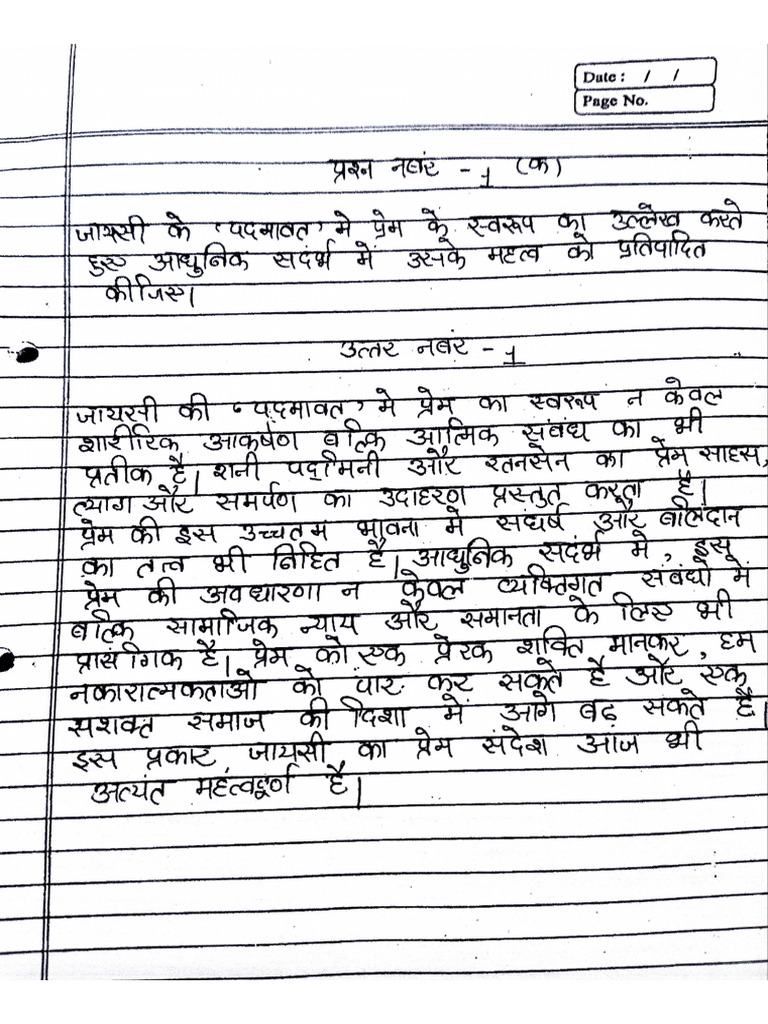 Date : / /
Page No.
प्रश्न नबंर - 1 (क)
जायसी के 'पदमावत' मे प्रेम के स्वरूप का उल्लेख करते
हुए आधुनिक सदंर्भ में उसके महत्व को प्रतिपादित
कीजिए।
उत्तर नबंर - 1
जायसी की 'पदमावत' मे प्रेम का स्वरूप न केवल
शारीरिक आकर्षण बल्कि आत्मिक संबंध का भी
प्रतीक है। रानी पद्मिनी और रतनसेन का प्रेम साहस,
त्याग और समर्पण का उदाहरण प्रस्तुत करता है।
प्रेम की इस उच्चतम भावना मे संघर्ष और बलिदान
का तत्व भी निहित है। आधुनिक सदंर्भ मे, इस
प्रेम की अवधारणा न केवल व्यक्तिगत संबंधो में
बल्कि सामाजिक न्याय और समानता के लिए भी
प्रासंगिक है। प्रेम को एक प्रेरक शक्ति मानकर, हम
नकारात्मकताओ को पार कर सकते है और एक
सशक्त समाज की दिशा में आगे बढ़ सकते है।
इस प्रकार, जायसी का प्रेम संदेश आज भी
अत्यंत महत्वपूर्ण है।